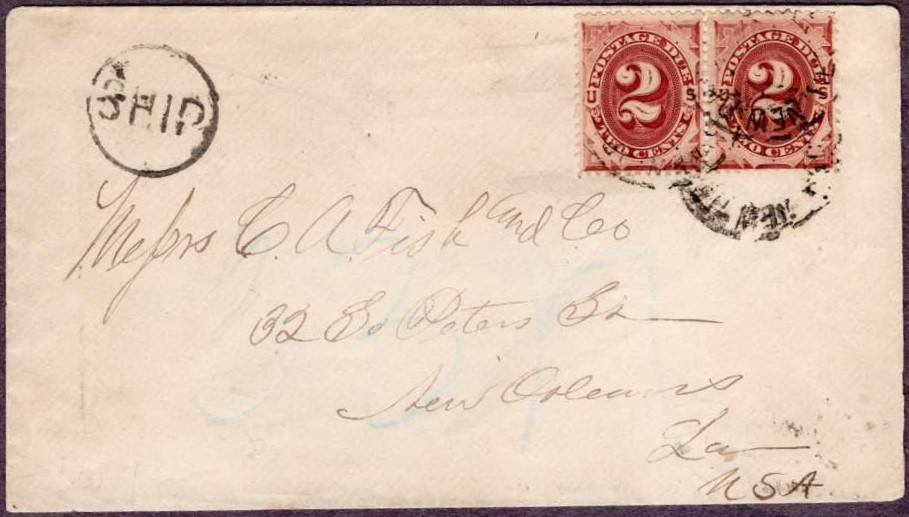 SHIP
POSTAGE DUE
2
TWO CENTS
U S
POSTAGE DUE
2
TWO CENTS
S
NEW
NEW
Messrs C. A. Fish and Co
32 So Peters St
New Orleans
La
USA